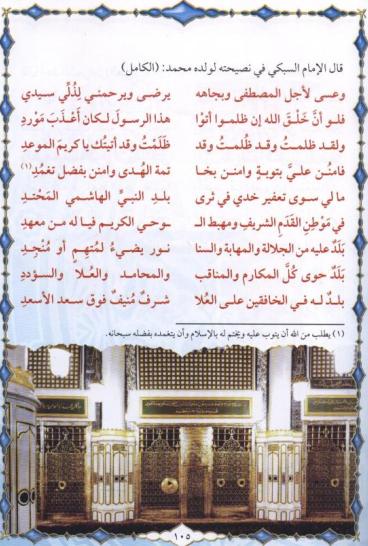 قال الإمام السبكي في نصيحته لولده محمد: (الكامل)
وعسى لأجل المصطفى وبجاهه يرضى ويرحمني لِذُلِّي سيدي
فلو أنَّ خَلْقَ الله إن ظلموا أتوْا هذا الرسولَ لكان أعْذَبَ مَوْرِدِ
ولقد ظلمتُ وقد ظُلمتُ وقد ظَلَمْتُ وقد أتيتُك يا كريمَ الموعدِ
فامنُن عليَّ بتوبةٍ وامنن بخا تمة الهُدى وامنن بفضل تَغمُّدِ(١)
ما لي سوى تعفير خدي في ثرى بلدِ النبيِّ الهاشمي المَحْتِدِ
في مَوْطِنِ القدَمِ الشريفِ ومهبط الـ ـوحي الكريم فيا له من معهدِ
بَلَدٌ عليه من الجلالة والمهابة والسنا نور يضيءُ لمُتهِمٍ أو مُنْجِدِ
بَلَدٌ حوى كُلَّ المكارم والمناقب والمحامد والعُلا والسؤددِ
بلدٌ لـه في الخافقين على العُلا شرفٌ مُنيفٌ فوق سعد الأسعدِ
(١) يطلب من الله أن يتوب عليه ويختم له بالإسلام وأن يتغمده بفضله سبحانه.
١٠٥